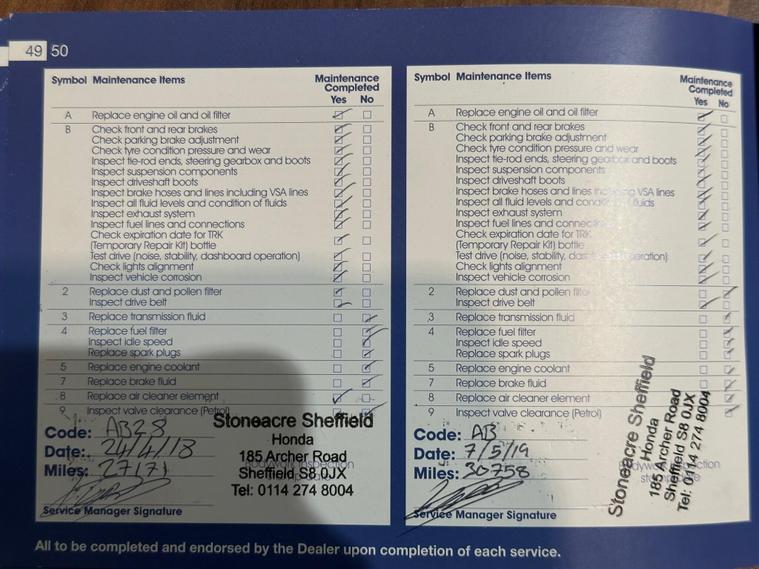 49 50
Symbol Maintenance Items Maintenance Completed
Yes No
A Replace engine oil and oil filter
B Check front and rear brakes
Check parking brake adjustment
Check tyre condition pressure and wear
Inspect tie-rod ends, steering gearbox and boots
Inspect suspension components
Inspect driveshaft boots
Inspect brake hoses and lines including VSA lines
Inspect all fluid levels and condition of fluids
Inspect exhaust system
Inspect fuel lines and connections
Check expiration date for TRK
(Temporary Repair Kit) bottle
Test drive (noise, stability, dashboard operation)
Check lights alignment
Inspect vehicle corrosion
2 Replace dust and pollen filter
Inspect drive belt
3 Replace transmission fluid
4 Replace fuel filter
Inspect idle speed
Replace spark plugs
5 Replace engine coolant
7 Replace brake fluid
8 Replace air cleaner element
9 Inspect valve clearance (Petrol)
Code: AB28
Date: 24/4/18
Miles: 27171
Service Manager Signature
Stoneacre Sheffield
Honda
185 Archer Road
Sheffield S8 0JX
Tel: 0114 274 8004
Symbol Maintenance Items Maintenance Completed
Yes No
A Replace engine oil and oil filter
B Check front and rear brakes
Check parking brake adjustment
Check tyre condition pressure and wear
Inspect tie-rod ends, steering gearbox and boots
Inspect suspension components
Inspect driveshaft boots
Inspect brake hoses and lines including VSA lines
Inspect all fluid levels and condition of fluids
Inspect exhaust system
Inspect fuel lines and connections
Check expiration date for TRK
(Temporary Repair Kit) bottle
Test drive (noise, stability, dashboard operation)
Check lights alignment
Inspect vehicle corrosion
2 Replace dust and pollen filter
Inspect drive belt
3 Replace transmission fluid
4 Replace fuel filter
Inspect idle speed
Replace spark plugs
5 Replace engine coolant
7 Replace brake fluid
8 Replace air cleaner element
9 Inspect valve clearance (Petrol)
Code: AB
Date: 7/5/19
Miles: 30758
Service Manager Signature
Stoneacre Sheffield
Honda
185 Archer Road
Sheffield S8 0JX
Tel: 0114 274 8004
All to be completed and endorsed by the Dealer upon completion of each service.